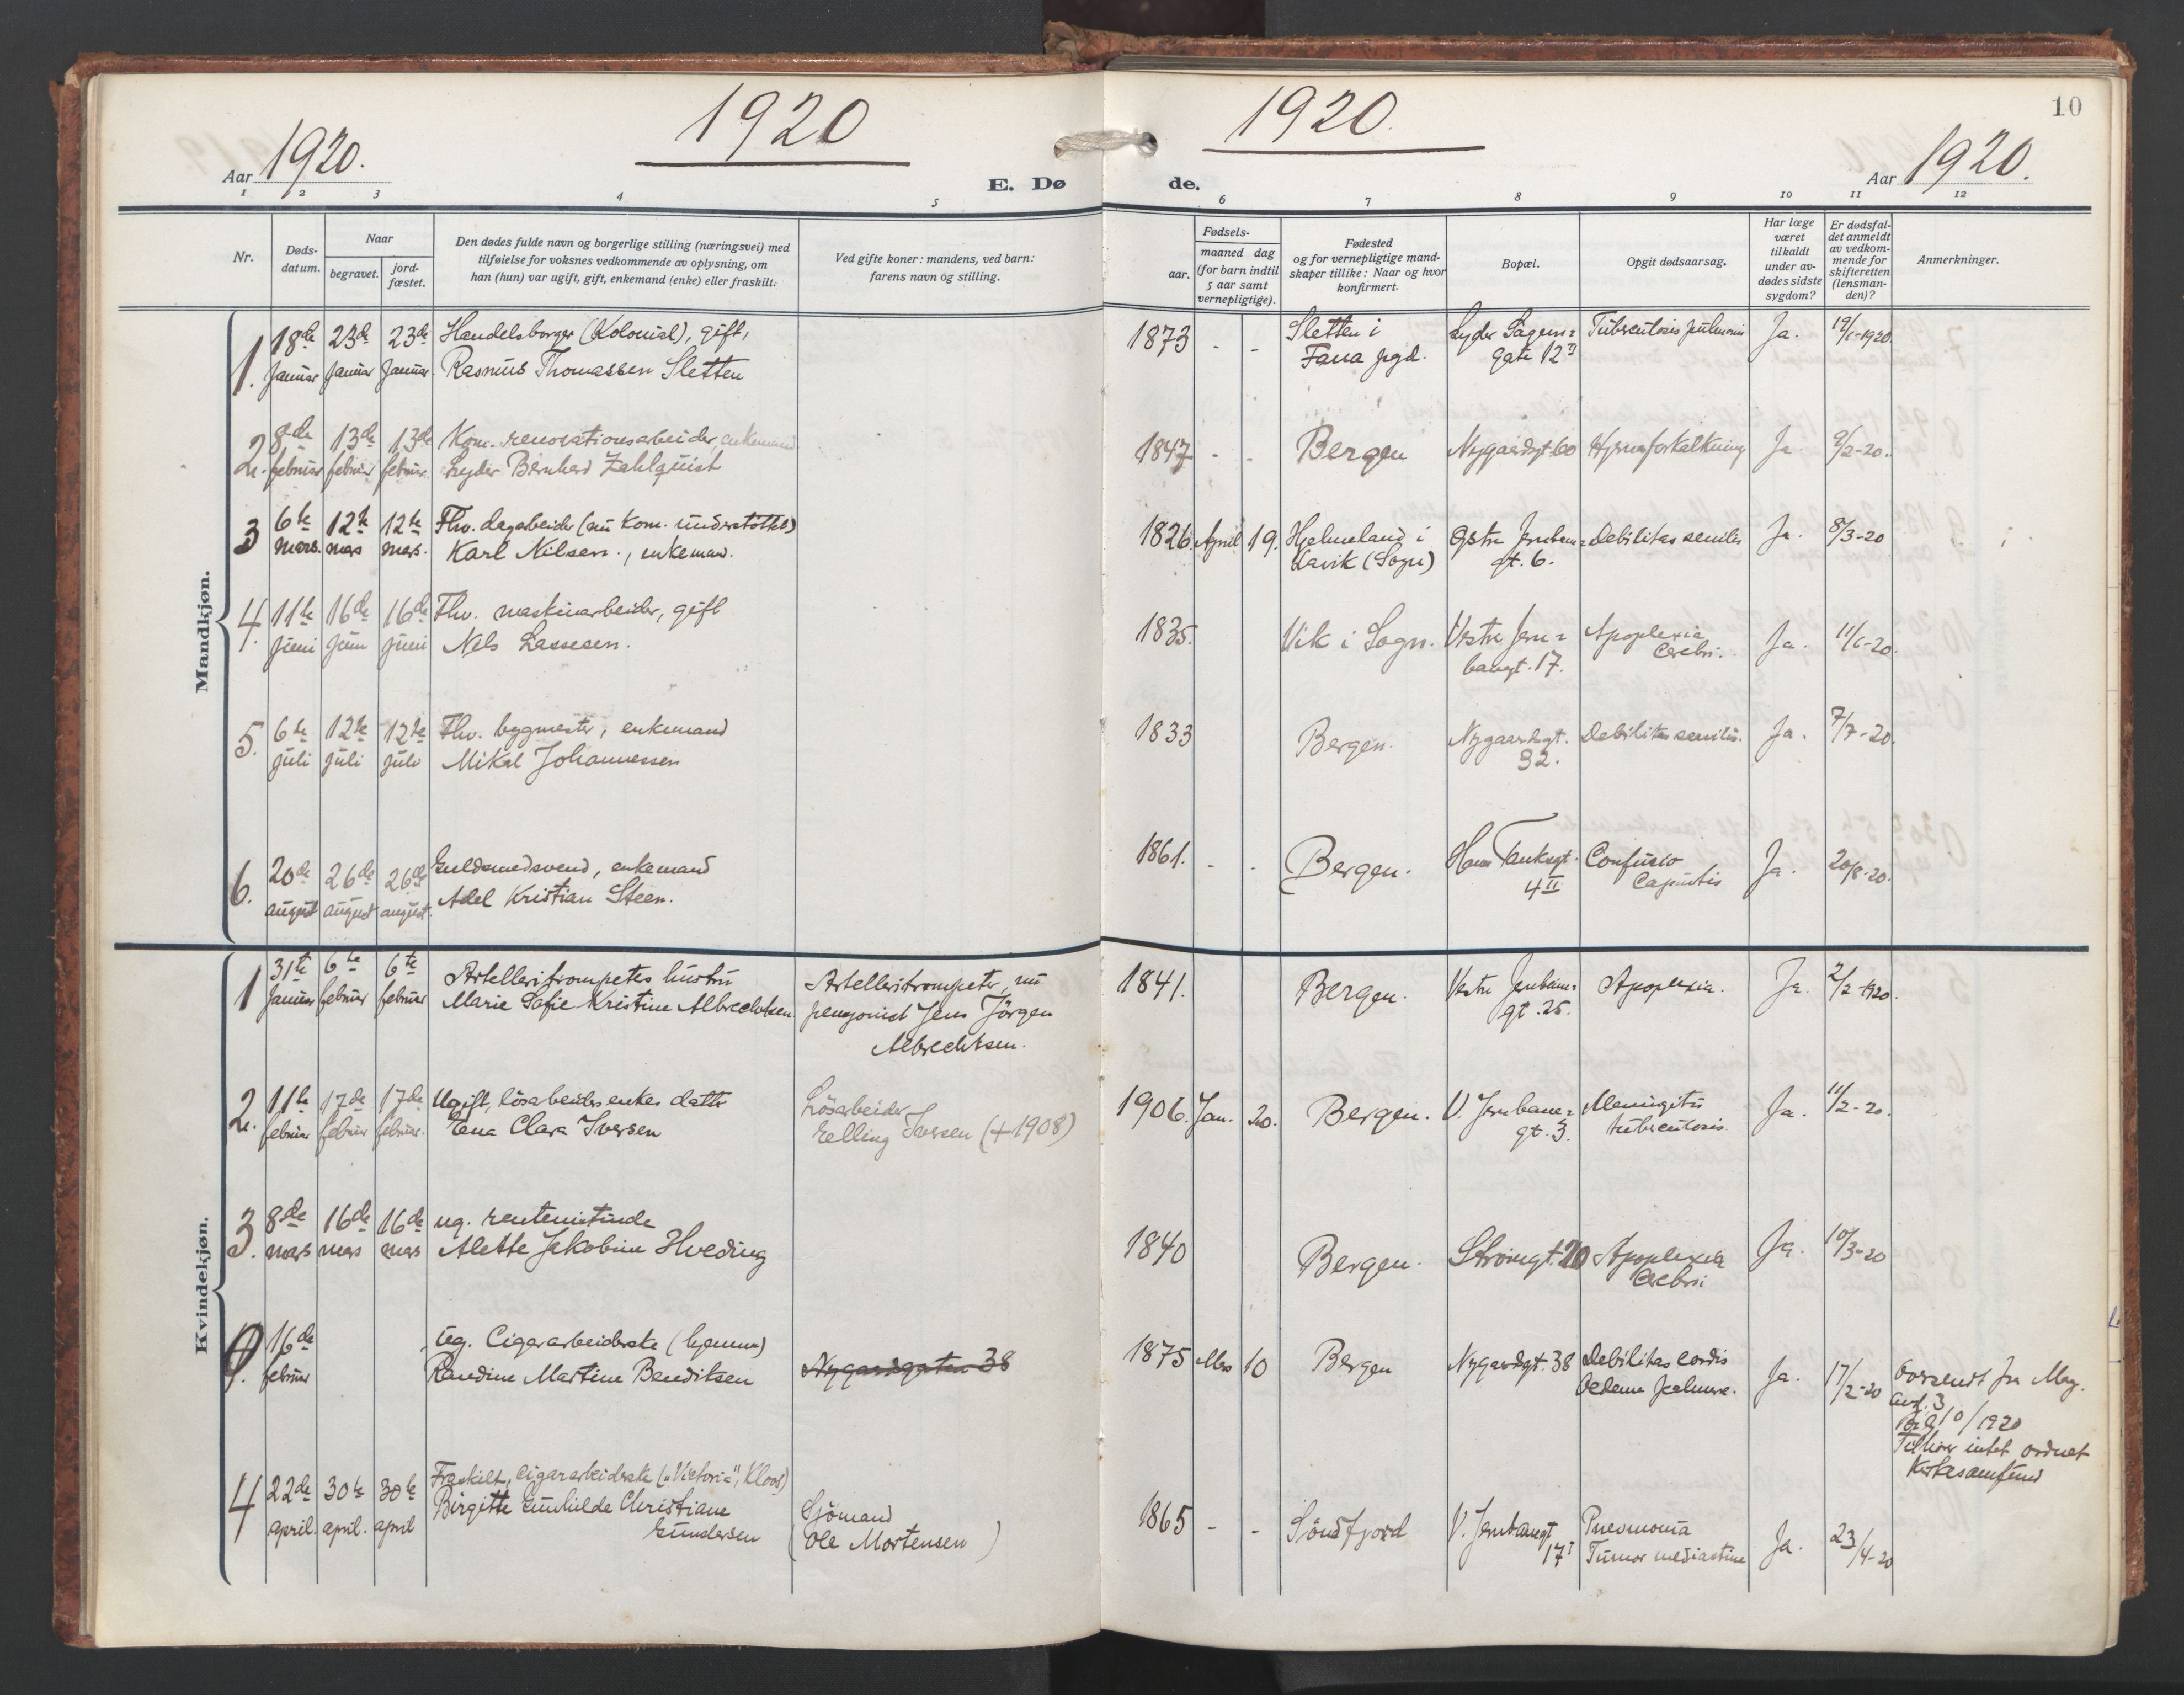 1920
Aar 1920.
E. Dø
1 2 3 4 5
Nr.
Døds-
datum.
Naar
begravet.
jord-
fæstet.
Den dødes fulde navn og borgerlige stilling (næringsvei) med
tilføielse for voksnes vedkommende av oplysning, om
han (hun) var ugift, gift, enkemand (enke) eller fraskilt.
Ved gifte koner: mandens, ved barn:
farens navn og stilling.
Mandkjøn.
1. 18de 23de 23de Handelsborger (Kolonial), gift,
Januar Januar Januar. Rasmus Thomassen Sletten
2. 8de 13de 13de Kom. renovationsarbeider, enkemand
februar februar februar. Lyder Bernhard Zahlquist
3 6te 12te 12te Fhv. dagarbeider (nu kom. understøttet)
mars. mars mars. Karl Nilsen., enkemand.
4. 11te 16de 16de Fhv. maskinarbeider, gift
juni juni juni Nels Lassesen.
5. 6te 12te 12te Fhv. bygmester, enkemand
juli juli juli Mikal Johannessen
6. 20de 26de 26de Guldsmedsvend, enkemand
august august august. Adel Kristian Steen.
Kvindekjøn.
1 31te 6te 6te Artelleritrompeters hustru Artelleritrompeter, nu
Januar februar februar Marie Sofie Kristine Albrechtsen pensjonist Jens Jörgen
Albrechtsen.
2. 11te 17de 17de Ugift, lösarbeiders enkes datter Lösarbeider
februar februar februar. Ena Clara Iversen Elling Iversen (+1908)
3. 8de 16de 16de ug. rentenistinde
mars mars mars Alette Jakobine Hveding
16de ug. Cigararbeiderske (hjemme)
februar Randine Martine Bendiksen Nygaardsgaten 38
4 22de 30te 30te Fraskilt, cigararbeiderske („Victoria", Kloos)
april. april. april Birgitte Gunhilde Christiane Sjömand
Gundersen (Ole Mortensen)
1920.
10
de.
Aar 1920.
6 7 8 9 10 11 12
Fødsels-
aar.
maaned dag
(for barn indtil
5 aar samt
vernepligtige).
Fødested
og for vernepligtige mand-
skaper tillike: Naar og hvor
konfirmert.
Bopæl.
Opgit dødsaarsag.
Har læge
været
tilkaldt
under av-
dødes sidste
sygdom?
Er dødsfal-
det anmeldt
av vedkom-
mende for
skifteretten
(lensman-
den)?
Anmerkninger.
1873 - - Sletten i Lyder Sagens= Tuberculosis pulmonum Ja. 19/1-1920.
Fana pgd. gate 12
1847 - - Bergen Nygaardsgt. 60 Hjerneforkalkning Ja 9/2-20.
1826. April 19. Hjelmeland i Østre Jernbane= Debilitas senilis Ja. 8/3-20
Lavik (Sogn) gt. 6.
1835. Vik i Sogn. Vestre Jern= Apoplexia Ja. 11/6-20.
banegt. 17. Cerebri.
1833 Bergen. Nygaardsgt. Debilitas senilis. Ja. 7/7-20.
32.
1861. - - Bergen. Hans Tanksgt. Confusio Ja. 20/8-20.
4 II Capitis
1841. Bergen. Vestre Jernbane= Apoplexia. Ja. 2/2-1920.
gt. 25.
1906. Jan. 20. Bergen. V. Jernbane= Meningitis Ja. 11/2-20.
gt. 3. tuberculosis.
1840 Bergen. Strömgt. 20 Apoplexia Ja. 10/3-20
Cerebri
1875 Mars 10 Bergen Nygaardsgt. 38 Debilitas cordis Ja. 17/2-20 Oversendt fra Mag.
Oedema pulmon. avd. 3
10/1920
Tilhører intet ordnet
kirkesamfund
1865 - - Söndfjord V. Jernbanegt Pneumonia Ja. 23/4-20
17 I Tumor mediastini